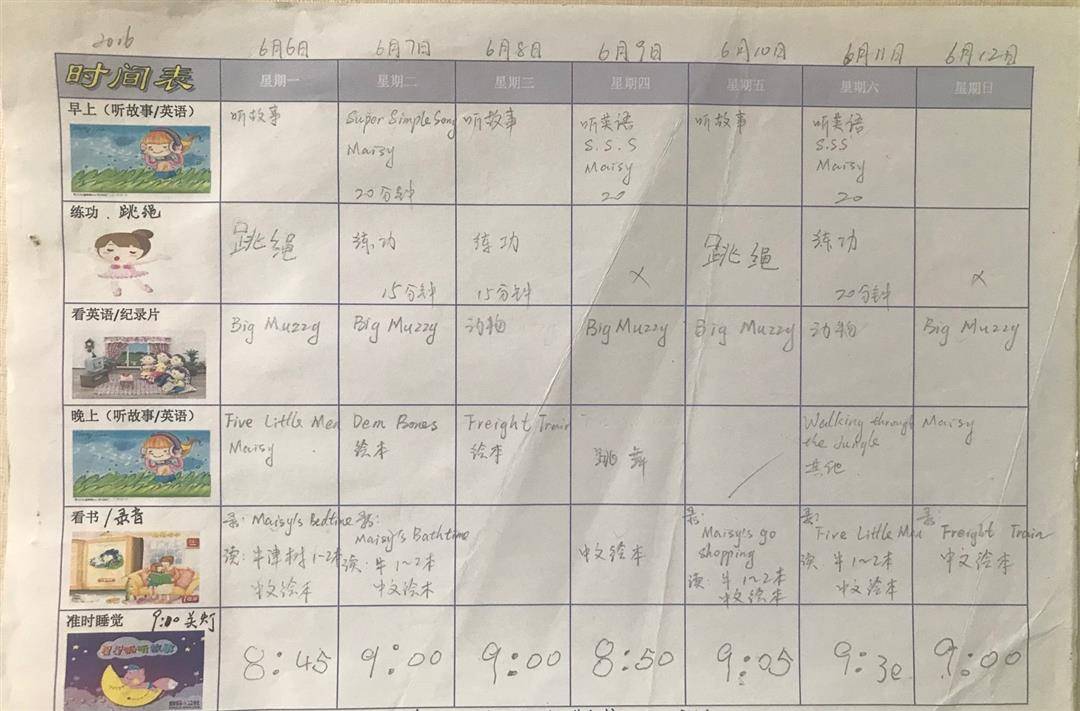 2016 6月6日 6月7日 6月8日 6月9日 6月10日 6月11日 6月12日
时间表 星期一 星期二 星期三 星期四 星期五 星期六 星期日
早上（听故事/英语）
听故事
Super Simple Song
Maisy
20分钟
听故事
听英语
S.S.S
Maisy
20
听故事
听英语
S.SS
Maisy
20
练功.跳绳
跳绳
练功
15分钟
练功
15分钟
×
跳绳
练功
20分钟
×
看英语/纪录片
Big Muzzy
Big Muzzy
动物
Big Muzzy
Big Muzzy
动物
Big Muzzy
晚上（听故事/英语）
Five Little Men
Maisy
Dem Bones
绘本
Freight Train
绘本
跳舞
Walking through
the Jungle
其他
Maisy
看书/录音
录: Maisy's Bedtime
读: 牛津树 1~2本
中文绘本
录:
Maisy's Bathtime
读: 牛 1~2本
中文绘本
中文绘本
录:
Maisy's go
shopping
读: 牛 1~2本
中文绘本
录:
Five Little Men
读: 牛 1~2本
中文绘本
录:
Freight Train
中文绘本
准时睡觉 9:00关灯
8:45
9:00
9:00
8:50
9:05
9:30
9:00